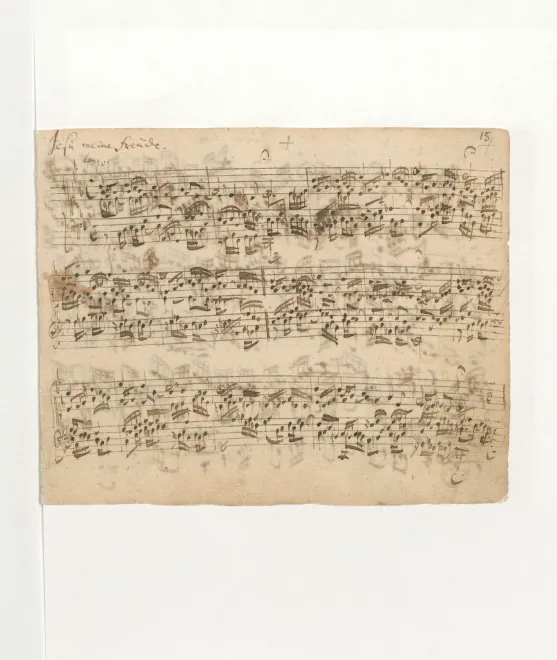 Jesu meine Freude.
15
Largo